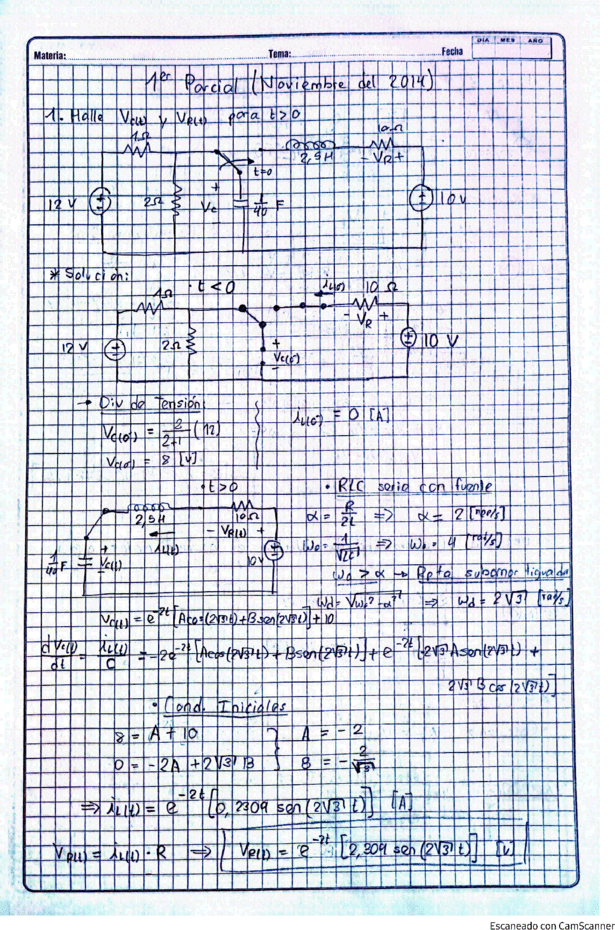 DIA MES AÑO
Materia: Tema: Fecha
1er Parcial (Noviembre del 2014)
1.- Halle Vc(t) y VR(t) para t>0
1Ω 2,5H 10Ω - VR +
t=0
12 V 2Ω + Vc - 1/40 F 10V
* Solución:
· t < 0
1Ω iL(0-) 10 Ω
- VR +
12 V 2Ω + Vc(0-) - 10 V
→ Div de Tensión:
Vc(0-) = 2/(2+1) (12)
Vc(0-) = 8 [V]
iL(0-) = 0 [A]
· t>0
2,5H 10Ω
iL(t) - VR(t) +
1/40 F + Vc(t) - 10V
· RLC serie con fuente
α = R/2L => α = 2 [nep/s]
ωo = 1/√LC => ωo = 4 [rad/s]
ωo > α → Rpta subamortiguada
ωd = √ωo² - α² => ωd = 2√3 [rad/s]
Vc(t) = e^-2t [Acos(2√3t) + Bsen(2√3t)] + 10
dVc(t)/dt = iL(t)/C = -2e^-2t [Acos(2√3t) + Bsen(2√3t)] + e^-2t [-2√3Asen(2√3t) +
2√3 B cos (2√3t)]
· Cond. Iniciales
8 = A + 10 } A = -2
0 = -2A + 2√3 B } B = -2/√3
=> iL(t) = e^-2t [0,2309 sen(2√3 t)] [A]
VR(t) = iL(t) · R => VR(t) = e^-2t [2,309 sen(2√3 t)] [V]
Escaneado con CamScanner